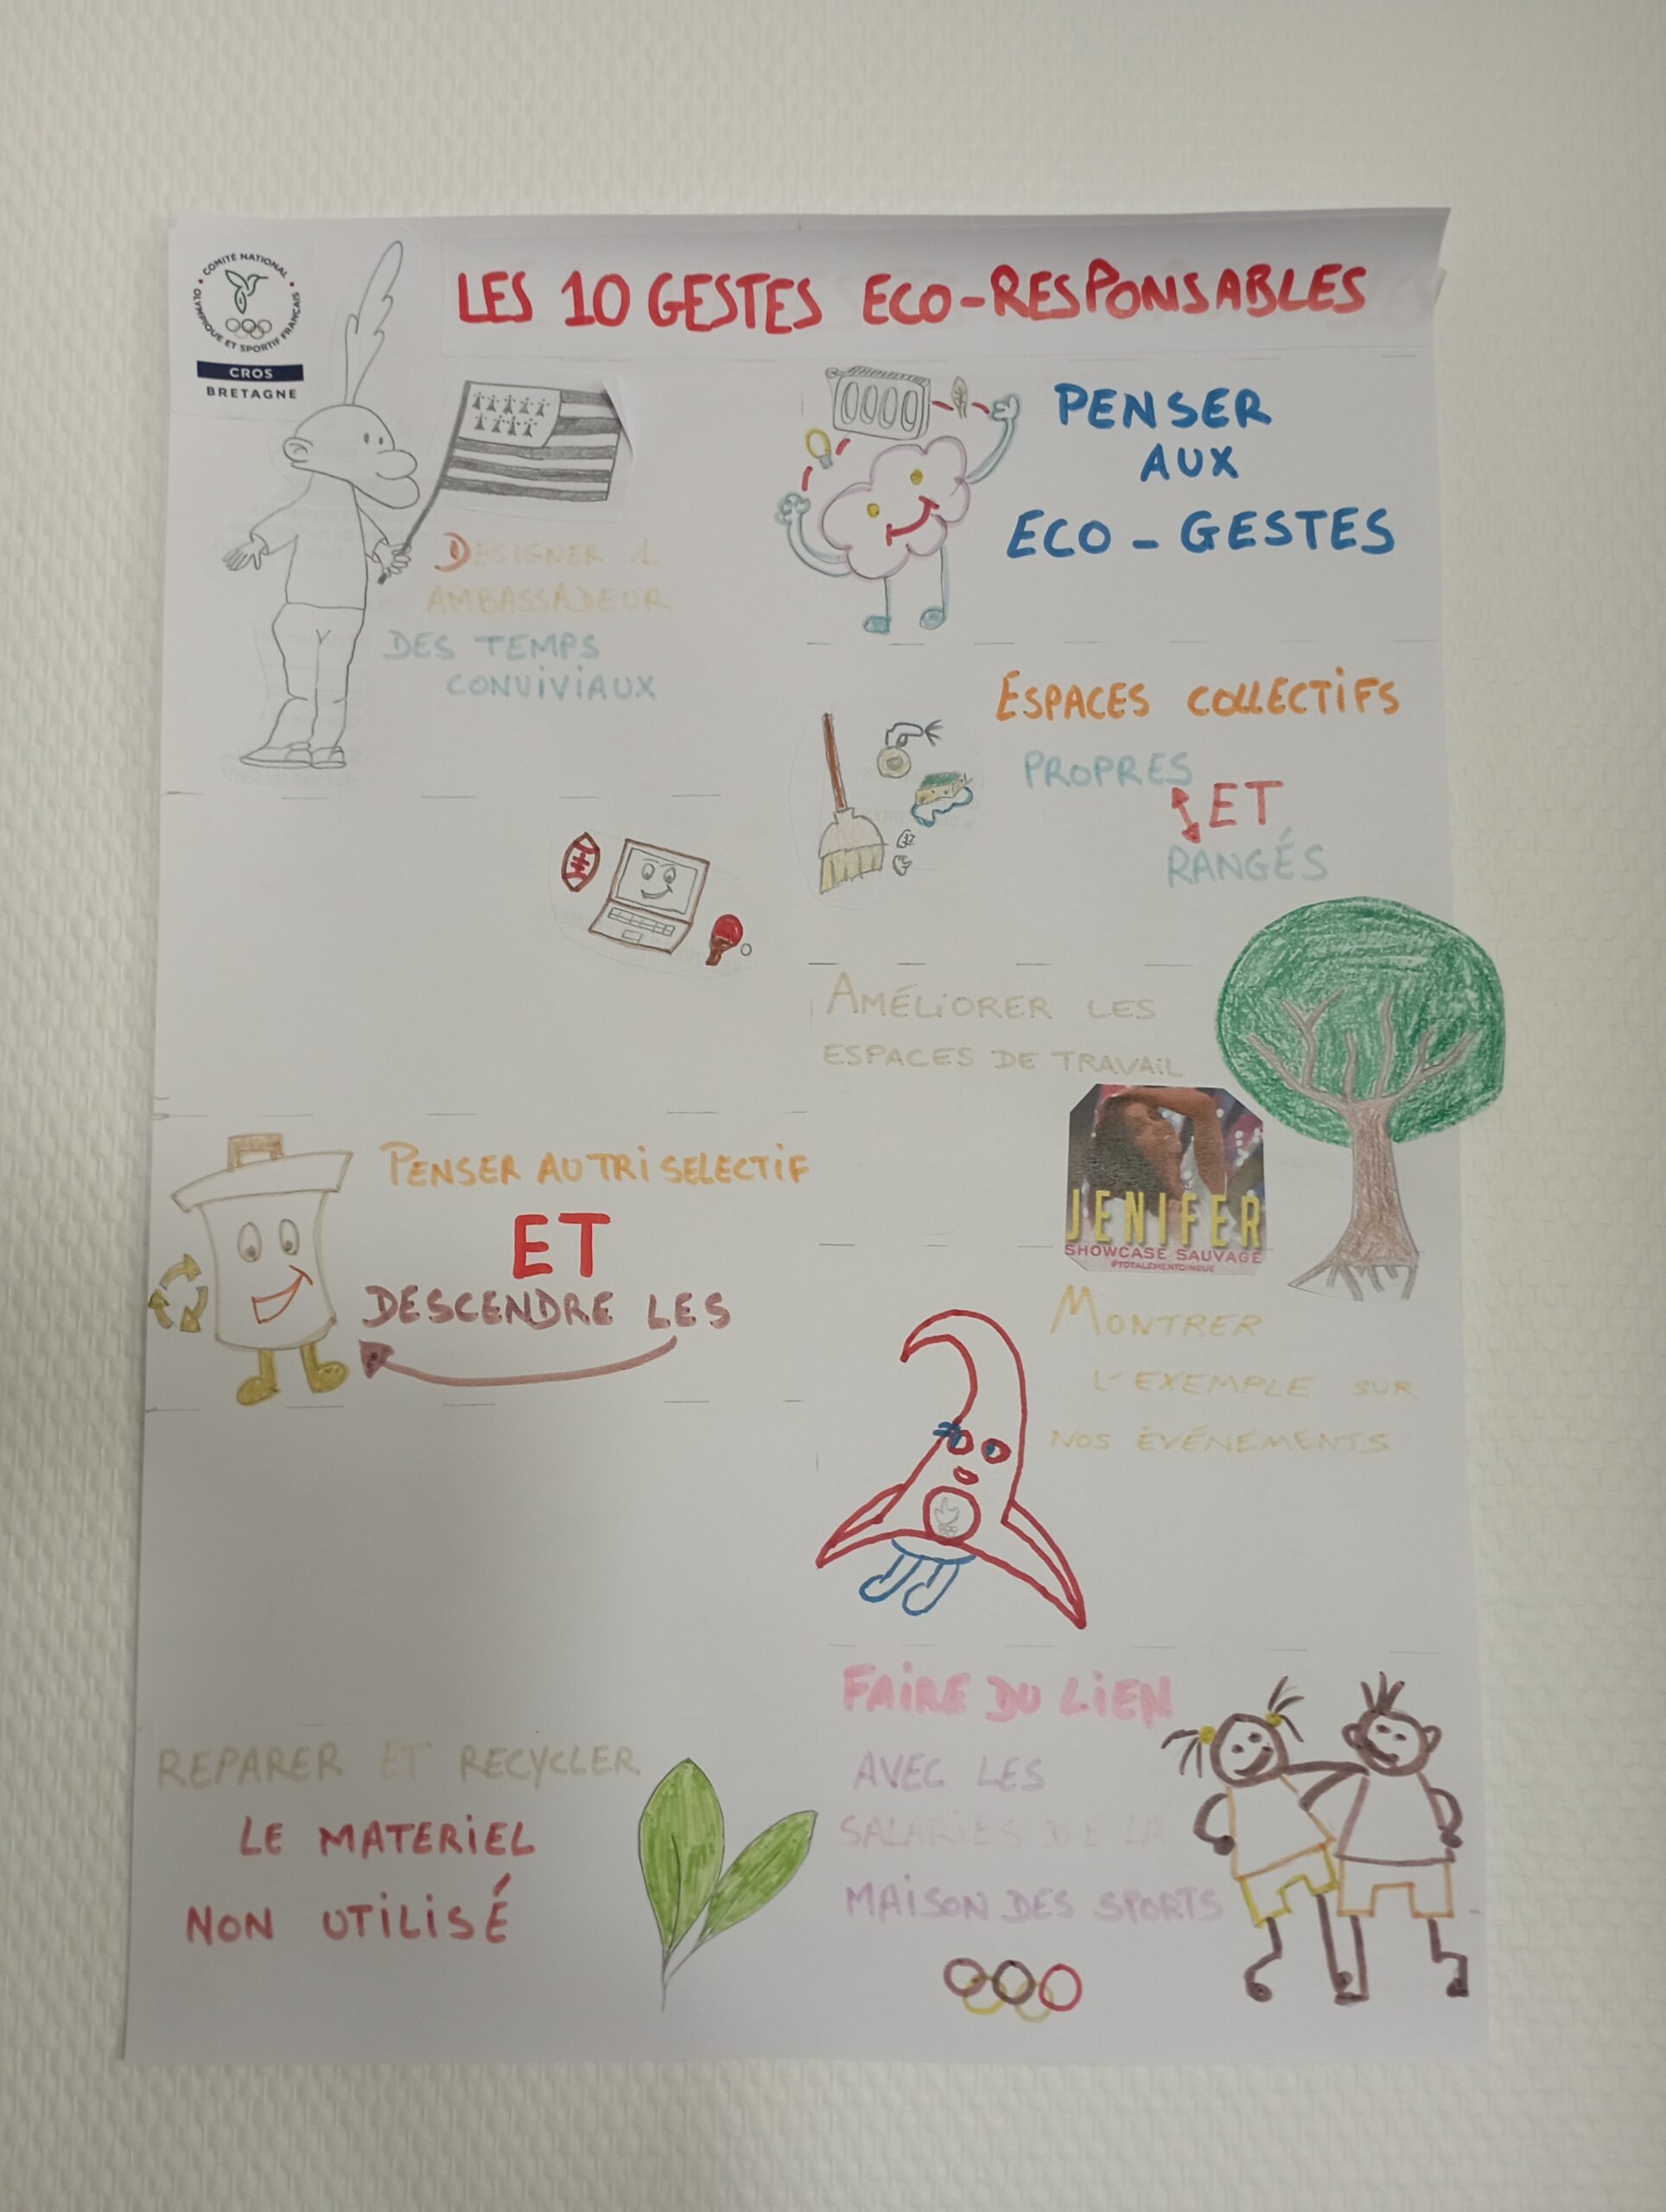 COMITÉ NATIONAL
OLYMPIQUE ET SPORTIF FRANÇAIS
CROS
BRETAGNE
LES 10 GESTES ECO-RESPONSABLES
DESIGNER 1
AMBASSADEUR
DES TEMPS
CONVIVIAUX
PENSER AU TRI SELECTIF
ET
DESCENDRE LES
REPARER ET RECYCLER
LE MATERIEL
NON UTILISÉ
PENSER
AUX
ECO - GESTES
ESPACES COLLECTIFS
PROPRES
ET
RANGÉS
AMÉLIORER LES
ESPACES DE TRAVAIL
JENIFER
SHOWCASE SAUVAGE
#TOTALEMENTDINGUE
MONTRER
L'EXEMPLE SUR
NOS ÉVÉNEMENTS
FAIRE DU LIEN
AVEC LES
SALARIES DE LA
MAISON DES SPORTS